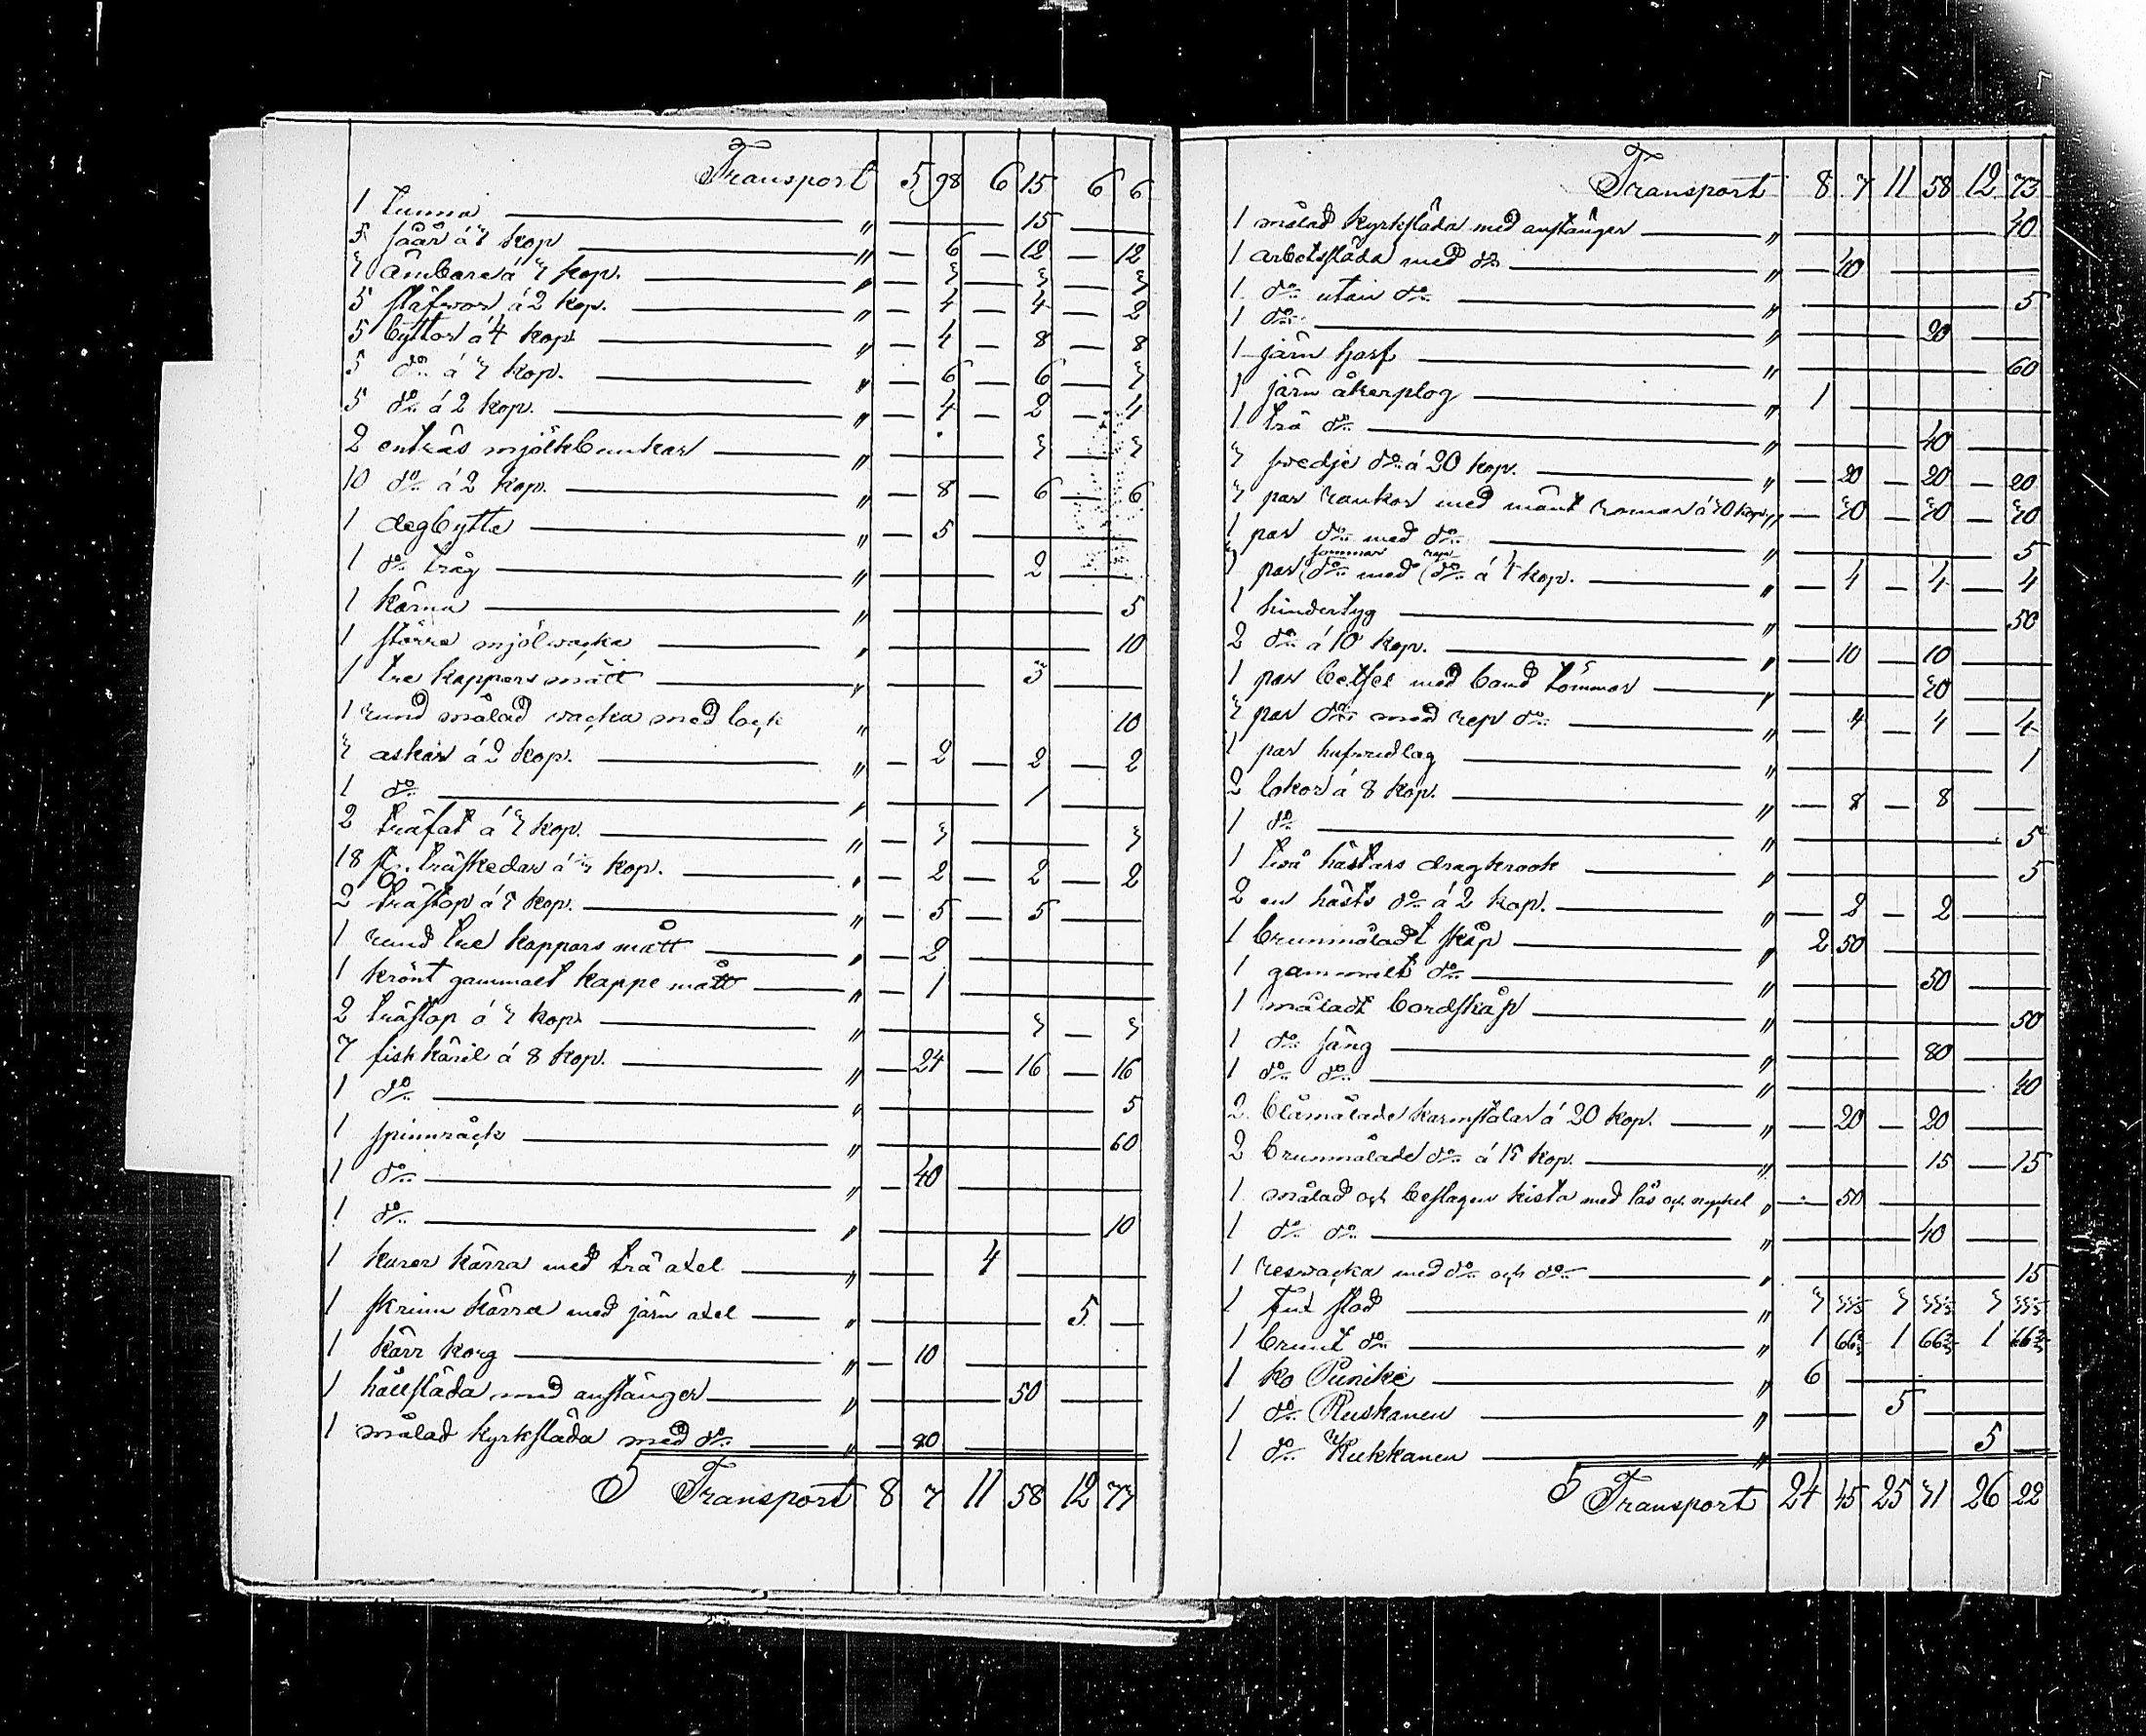 Transport 5 98 6 15 6 6
1 tunna " 15
5 såår á 6 kop " 6 12 12
3 ämbare á 3 kop. " 3 3 3
5 stäfvor á 2 kop. " 4 4 2
5 byttor á 4 kop " 4 8 8
5 d:o á 3 kop. " 6 6 3
5 d:o á 2 kop. " 4 2 4
2 enträs mjölkbunkar " 3 3
10 d:o á 2 kop. " 8 6 6
1 degbytta " 5
1 d:o tråg " 2
1 kärna " 5
1 större mjölvacka " 10
1 tre kappars mått " 3
1 rund målad vacka med lock " 10
3 askar á 2 kop. " 2 2 2
1 d:o " 1
2 träfat á 3 kop. " 3 3
18 st. träskedar á 1/3 kop. " 2 2 2
2 trästop á 5 kop. " 5 5
1 rund tre kappars mått " 2
1 krönt gammalt kappe mått " 1
2 trästop á 3 kop " 3 3
7 fiskkäril á 8 kop. " 24 16 16
1 d:o " 5
1 spinnråck " 60
1 d:o " 40
1 d:o " 10
1 kärra med trä axel " 4
1 skrinn kärra med järn axel " 5
1 kärr korg " 10
1 släda med anstänger " 50
1 målad kyrksläda med d:o " 80
S Transport 8 7 11 58 12 73
Transport 8 7 11 58 12 73
1 målad kyrksläda med anstänger " 40
1 arbetssläda med d:o " 40
1 d:o utan d:o " 5
1 d:o " 20
1 järn harf " 60
1 järn åkerplog " 1
1 trä d:o " 40
3 svedje d:o á 20 kop. " 20 20 20
3 par rankor med mänt remmar á 30 kop. " 30 30 30
1 par d:o med d:o " 5
3 par sommar d:o med rep d:o á 4 kop. " 4 4 4
1 hindertyg " 50
2 d:o á 10 kop. " 10 10
1 par betsel med band tömmar " 30
3 par d:o med rep d:o " 4 4 4
1 par hufvudlag " 1
2 lokor á 8 kop. " 8 8
1 d:o " 5
1 två hästars dragkrook " 5
2 en hästs d:o á 2 kop. " 2 2
1 brunmåladt skåp " 2 50
1 gammalt d:o " 50
1 måladt bordskåp " 50
1 d:o säng " 80
1 d:o d:o " 40
2 blåmålade karmstolar á 20 kop. " 20 20
2 brunmålade d:o á 15 kop. " 15 15
1 målad och beslagen kista med lås och nyckel " 50
1 d:o d:o " 40
1 resvacka med d:o och d:o " 15
1 sto " 3 33 1/3 3 33 1/3 3 33 1/3
1 brunt d:o " 1 66 2/3 1 66 2/3 1 66 2/3
1 ko Punike " 6
1 d:o Ruskanen " 5
1 d:o Kukkanen " 5
S Transport 24 45 25 31 26 22